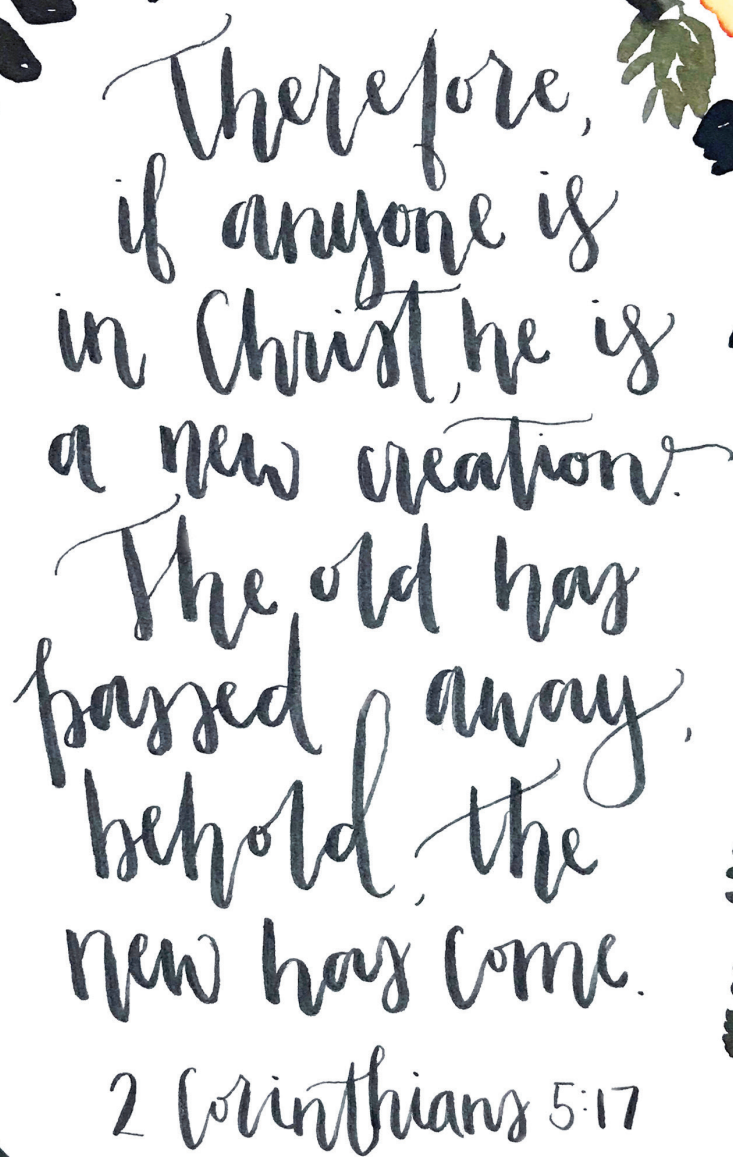 Therefore,
if anyone is
in Christ, he is
a new creation.
The old has
passed away,
behold, the
new has come.
2 Corinthians 5:17